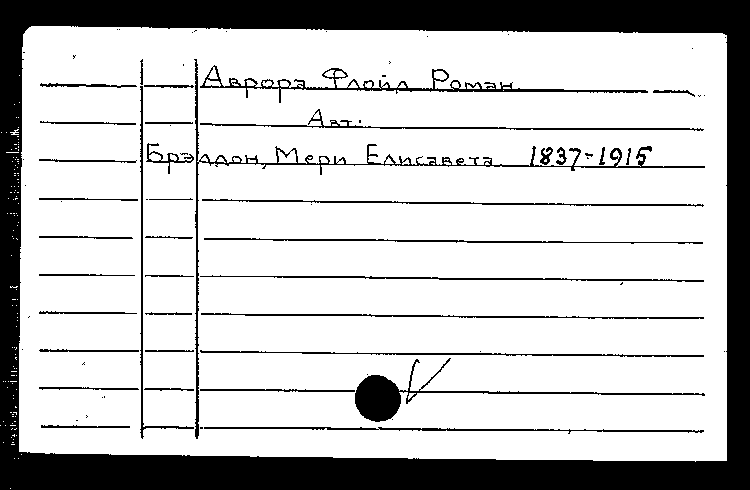 Аврора Флойд Роман
Авт:
Брэддон, Мери Елисавета 1837-1915